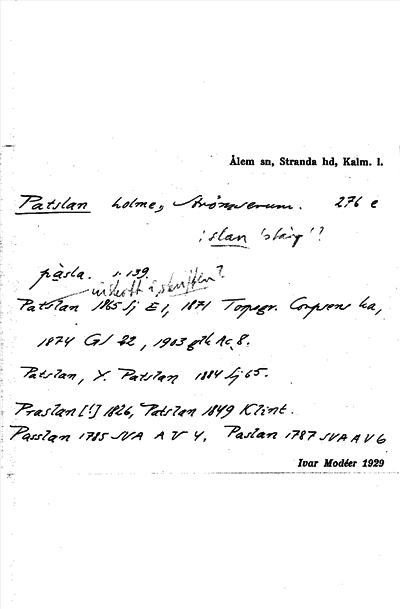 Ålem sn, Stranda hd, Kalm. l.
Patslan holme, Strömserum. 276 e
i slan 'slarg'?
pàsla. s. 139.
inskott i skriften?
Patslan 1865 Sj E 1, 1871 Topogr. Corpsens ka,
1874 GS 22, 1903 glk Ac 8.
Patslan, Y. Patslan 1884 Sj 65.
Praslan [!] 1826, Patslan 1849 Klint.
Passlan 1785 SVA A V 4. Paslan 1787 SVA A V 6
Ivar Modéer 1929